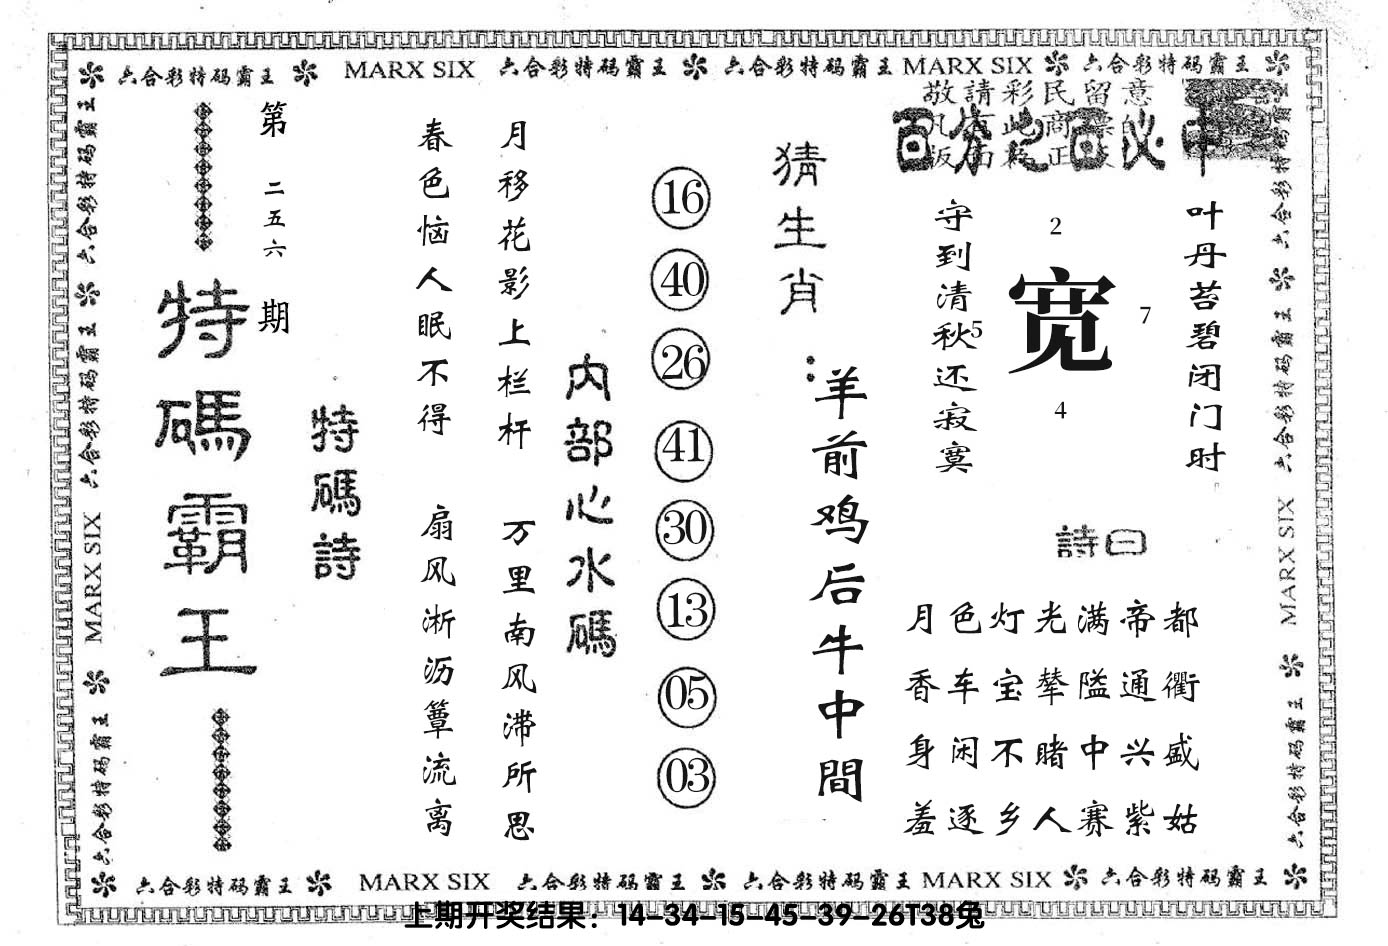 六合彩特码霸王 MARX SIX 六合彩特码霸王 六合彩特码霸王 MARX SIX 六合彩特码霸王
敬請彩民留意
百分之百必中
叶丹苔碧闭门时
守到清秋还寂寞
宽
2
5
7
4
詩曰
月色灯光满帝都
香车宝辇隘通衢
身闲不睹中兴盛
羞逐乡人赛紫姑
猜生肖：
羊前鸡后牛中間
16
40
26
41
30
13
05
03
内部心水碼
月移花影上栏杆
万里南风滞所思
春色恼人眠不得
扇风淅沥簟流离
特碼詩
第二五六期
特碼霸王
六合彩特码霸王 六合彩特码霸王 六合彩特码霸王 MARX SIX 六合彩特码霸王
六合彩特码霸王 六合彩特码霸王 MARX SIX 六合彩特码霸王
六合彩特码霸王 MARX SIX 六合彩特码霸王 六合彩特码霸王 MARX SIX 六合彩特码霸王
上期开奖结果：14-34-15-45-39-26T38兔